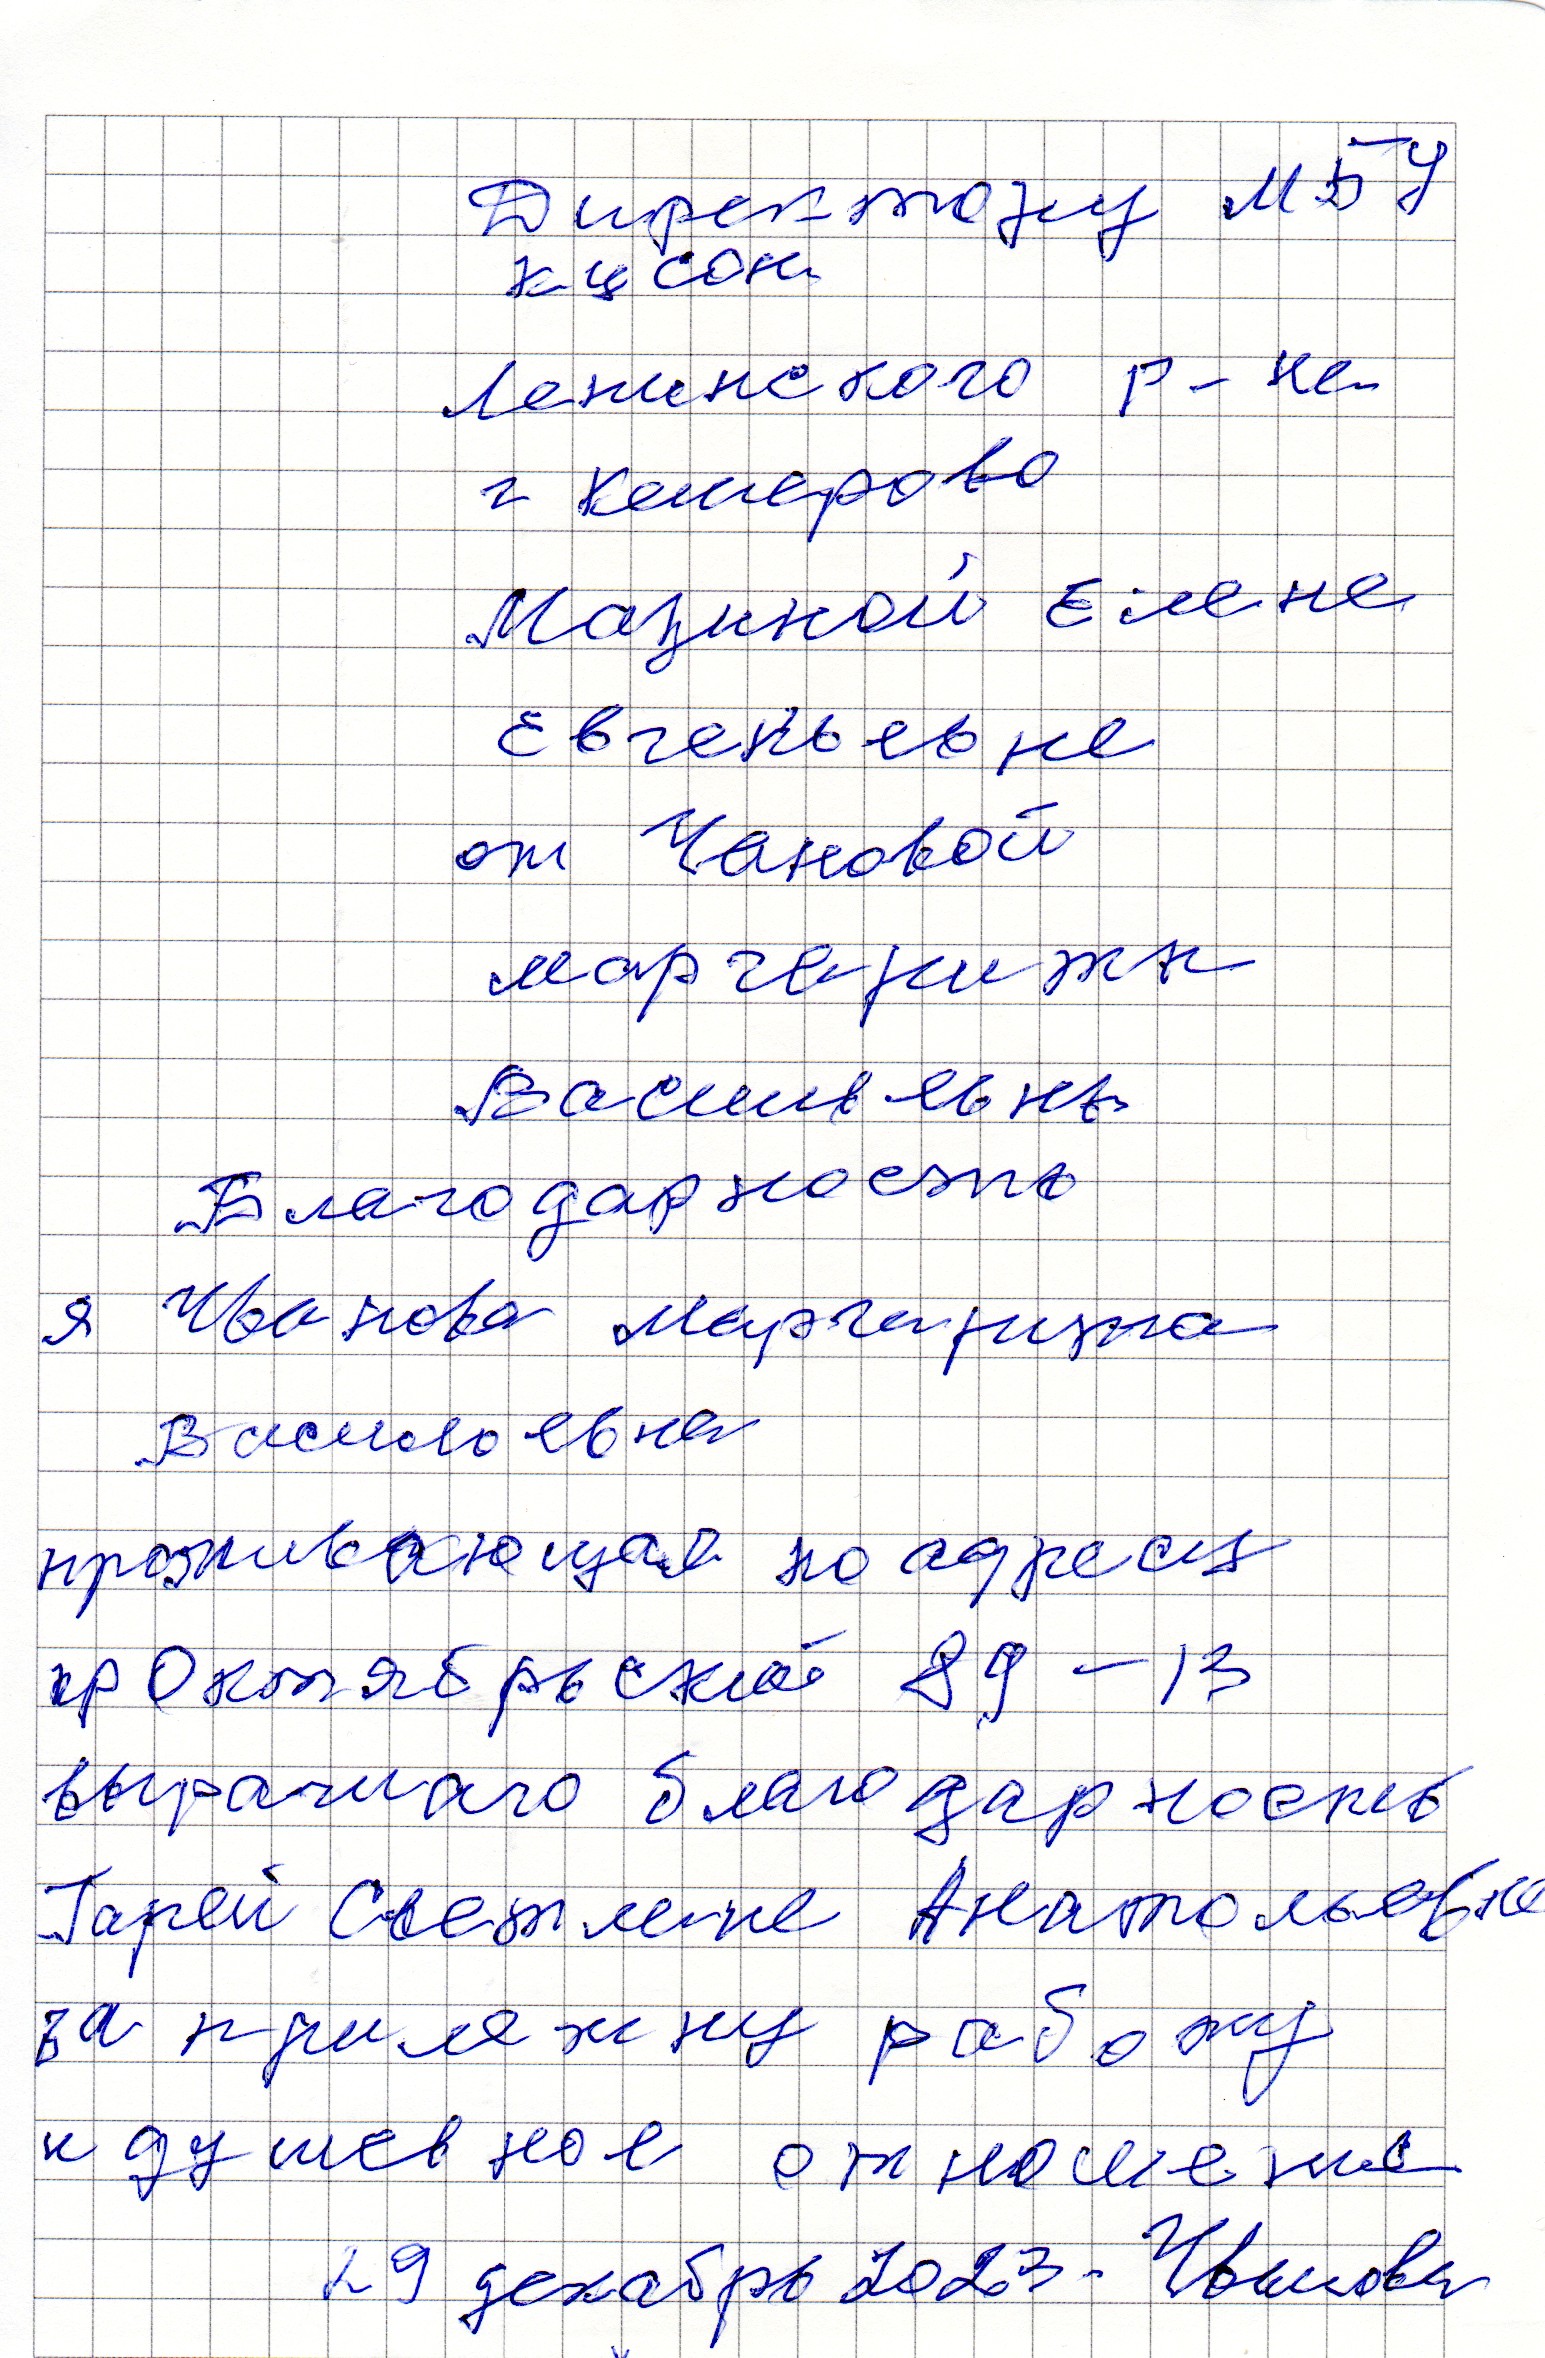 Директору МБУ
кцсон
Ленинского р-на
г Кемерово
Мазиной Елене
Евгеньевне
от
маргариты
Васильевны
Благодарность
я Иванова маргарита
Васильевна
проживающая по адресу
пр Октябрьский 89-13
выражаю благодарность
Гарей Светлане Анатольевне
за прилежну работу
и душевное отношение
29 декабрь 2023. Иванова